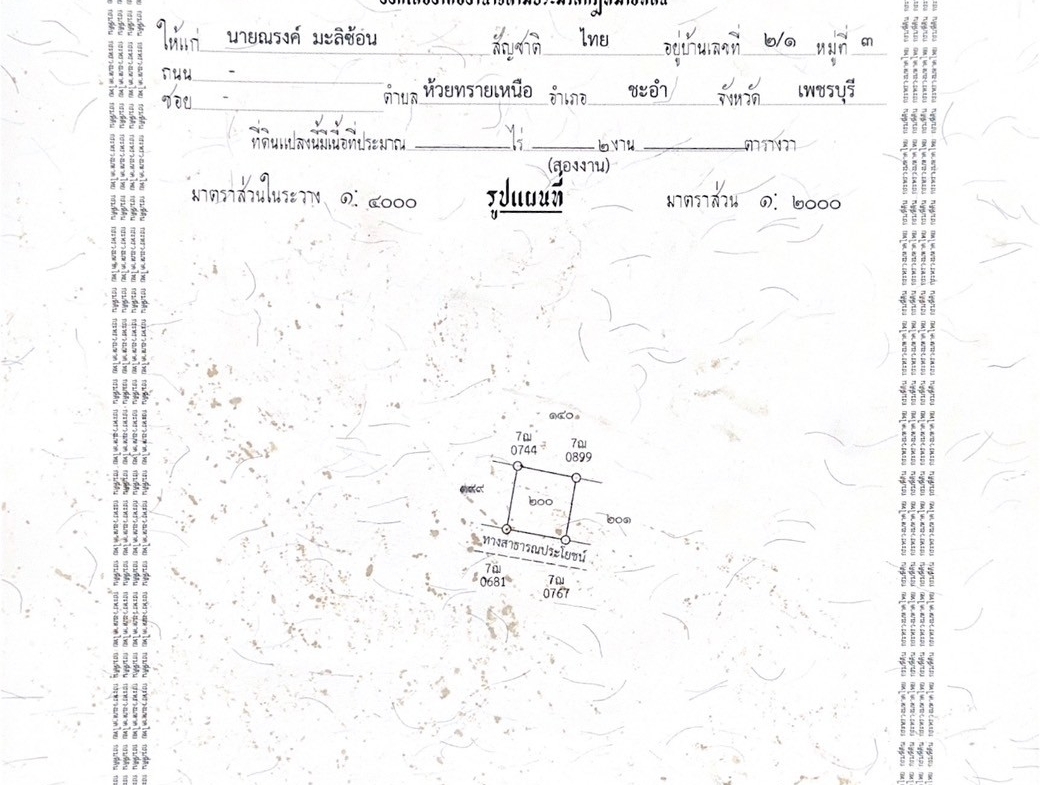 ให้แก่ นายณรงค์ มะลิซ้อน สัญชาติ ไทย อยู่บ้านเลขที่ ๒/๑ หมู่ที่ ๓
ถนน -
ซอย - ตำบล ห้วยทรายเหนือ อำเภอ ชะอำ จังหวัด เพชรบุรี
ที่ดินแปลงนี้มีเนื้อที่ประมาณ ไร่ ๒ งาน ตารางวา
(สองงาน)
มาตราส่วนในระวาง ๑: ๔๐๐๐ รูปแผนที่ มาตราส่วน ๑: ๒๐๐๐
๑๔๐
7ฌ 7ฌ
0744 0899
๒๐๐
๒๐๑
ทางสาธารณประโยชน์
7ฌ 7ฌ
0681 0767